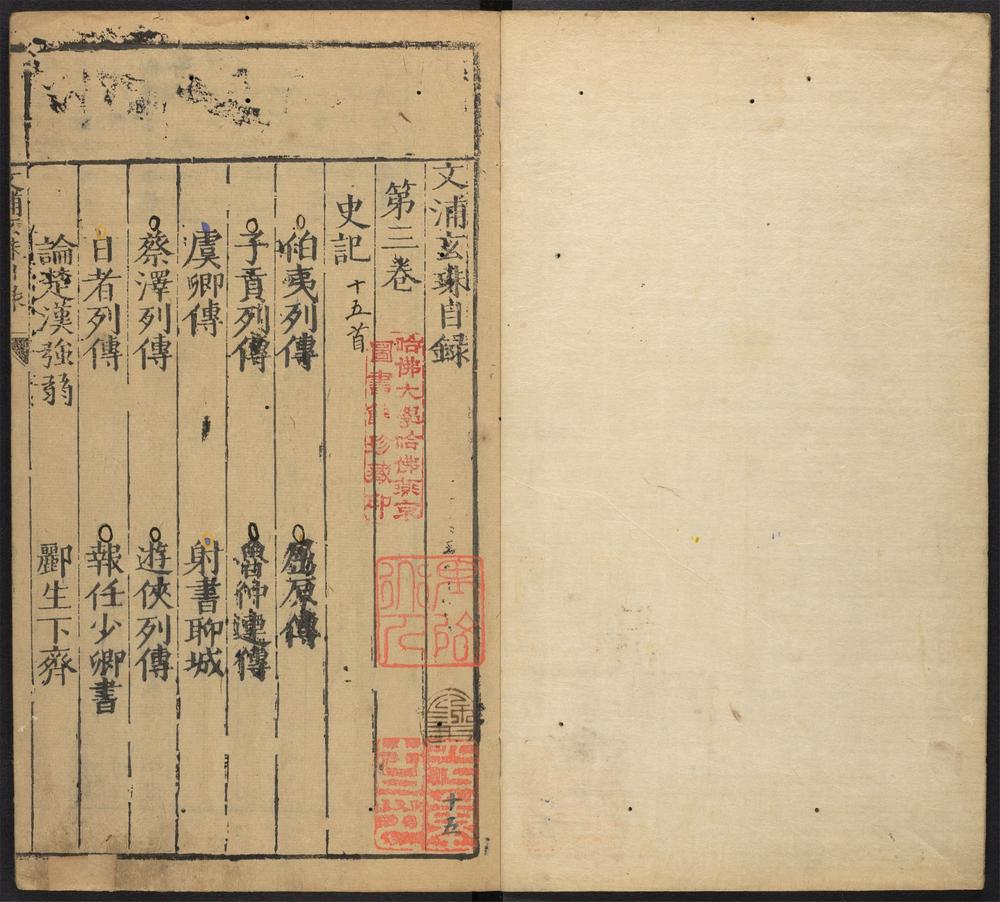 文浦玄珠目錄
第三卷
史記 十五首
伯夷列傳 屈原傳
子貢列傳 魯仲連傳
虞卿傳 射書聊城
蔡澤列傳 遊俠列傳
日者列傳 報任少卿書
論楚漢強弱 酈生下齊
哈佛大學哈佛燕京
圖書館珍藏印
十五